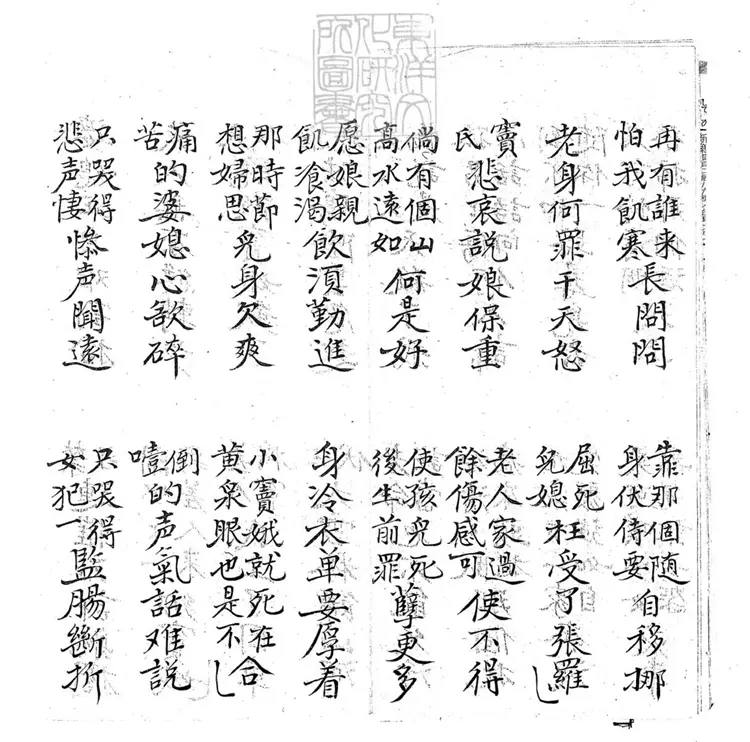 再有誰来怕我飢寒長問問
靠那個随身伏侍要自移挪
老身何罪干天怒
屈死兒媳枉受了張羅
竇氏悲哀説娘保重
老人家過餘傷感可使不得
倘有個山高水遠如何是好
使孩兒死後生前罪孽更多
愿娘親飢飡渴飲須勤進
身冷衣单要厚着
那時節想婦思兒身欠爽
小竇娥就死在黄泉眼也是不合
痛苦的婆媳心欲碎
倒噎的声氣話难説
只哭得悲声悽惨声聞遠
只哭得女犯一監腸斷折
東洋文化研究所圖書